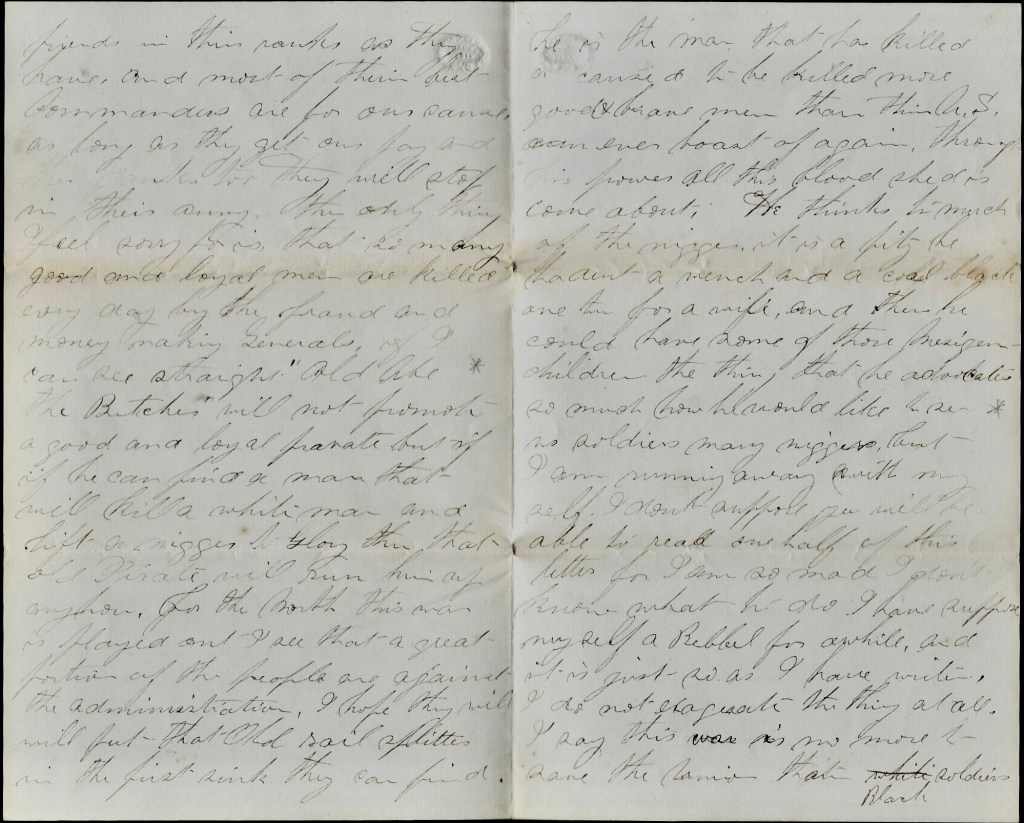 friends in thin ranks as they
have, and most of their best
Commanders are for our cause,
as long as they get our pay and
too They will stop
in their army. the only thing
I feel sorry for is, that so many
good and loyal men are killed
every day by the, fraud and
money making Generals, if I
can see straight." Old Abe *
the Butcher" will not promote
a good and loyal private but if
if he can find a man that
will kill a white man and
lift a nigger to glory then that
old Pirate will run him up
anyhow. For the North this war
is played out I see that a great
portion of the people are against
the administration, I hope they will
will put that Old rail splitter
in the first sink they can find.
he is the man that has killed
or caused to be killed more
good & brave men than this U.S.
can ever boast of again. Through
his power all this blood shed is
come about; He thinks to much
of the nigger, it is a pity he
hadent a wench and a coal black
one to for a wife, and then he
could have some of those
children the thing that he advocates
so much how he would like to see *
us soldiers mary niggers, but
I am running away with my
self. I dont suppose you will be
able to read one half of this
letter for I am so mad I dont
know what to do I have suppose
myself a Rebbel for awhile, and
it is just so as I have writen,
I do not exagerate the thing at all.
I say this war is no more to
save the Union than white soldiers
Black